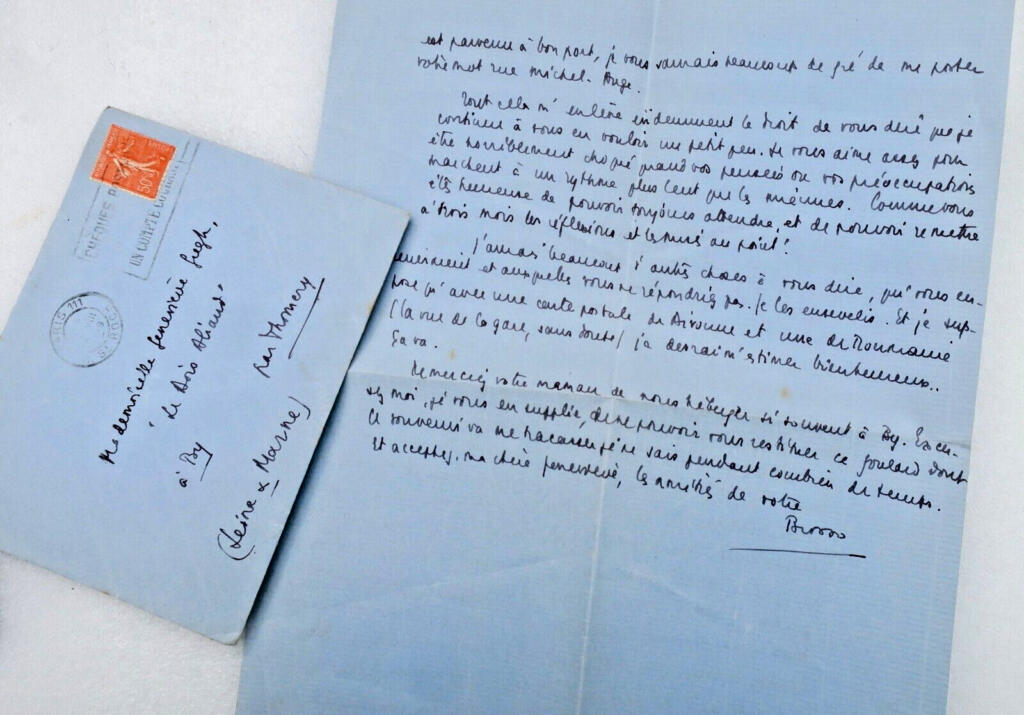 50c
CHEQUES
UN COMPTE COURANT
PARIS 111
Mademoiselle Geneviève Gregh,
"Le Bois Blond"
à By
par Thomery
(Seine & Marne)
est parvenue à bon port, je vous saurais beaucoup de gré de me poster
votre mot rue Michel-Ange.
Tout cela m'enlève évidemment le droit de vous dire que je
continue à vous en vouloir un petit peu. Je vous aime assez pour
être horriblement choqué quand vos pensées ou vos préoccupations
marchent à un rythme plus lent que les miennes. Comme vous
êtes heureuse de pouvoir toujours attendre, et de pouvoir remettre
à trois mois les réflexions et les mises au point!
J'aurais beaucoup d'autres choses à vous dire, qui vous en-
nuieraient et auxquelles vous ne répondriez pas. Je les ensevelis. Et je sup-
pose qu'avec une carte postale de Divonne et une de Roumanie
(la vue de la gare, sans doute) je devrai m'estimer bienheureux..
Ça va.
Remerciez votre maman de nous héberger si souvent à By. Excu-
sez moi, je vous en supplie, de ne pouvoir vous restituer ce foulard dont
le souvenir va me tracasser je ne sais pendant combien de temps.
Et acceptez, ma chère Geneviève, les amitiés de votre